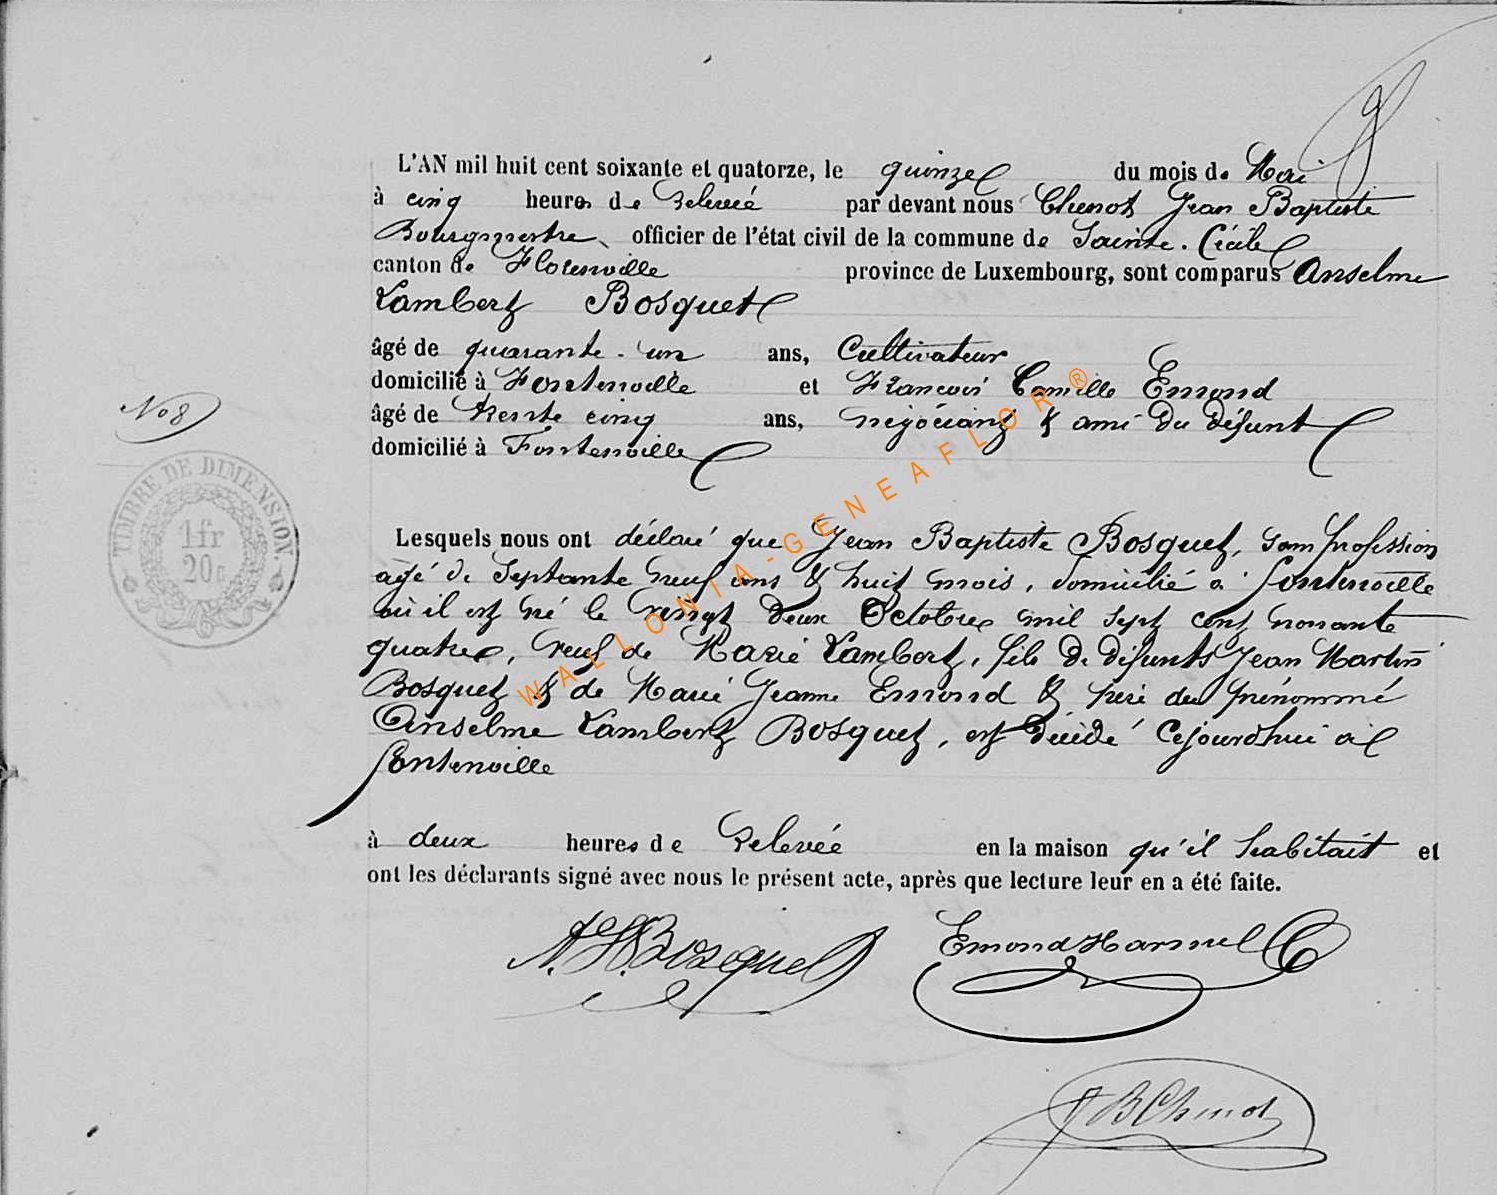 L'AN mil huit cent soixante et quatorze, le quinze du mois de Mai
à cinq heures de Relevée par devant nous Chenot Jean Baptiste
Bourgmestre, officier de l'état civil de la commune de Sainte-Cécile
canton de Florenville province de Luxembourg, sont comparus Anselme
Lambert Bosquet
âgé de quarante-un ans, Cultivateur
domicilié à Fontenoille et François Camille Emond
âgé de trente cinq ans, négociant & ami du défunt
domicilié à Fontenoille
No 8
TIMBRE DE DIMENSION.
1 fr
20 c
Lesquels nous ont déclaré que Jean Baptiste Bosquet, sans profession
agé de Septante neuf ans & huit mois, domicilié à fontenoille
où il est né le vingt deux Octobre mil sept cent nonante
quatre, veuf de Marie Lambert, fils de défunts Jean Martin
Bosquet & de Marie Jeanne Emond & père du prénommé
Anselme Lambert Bosquet, est décédé cejourd'hui à
fontenoille
à deux heures de Relevée en la maison qu'il habitait et
ont les déclarants signé avec nous le présent acte, après que lecture leur en a été faite.
Bosquet Emond
JB Chenot
WALLONIA-GENEAFLOR ®